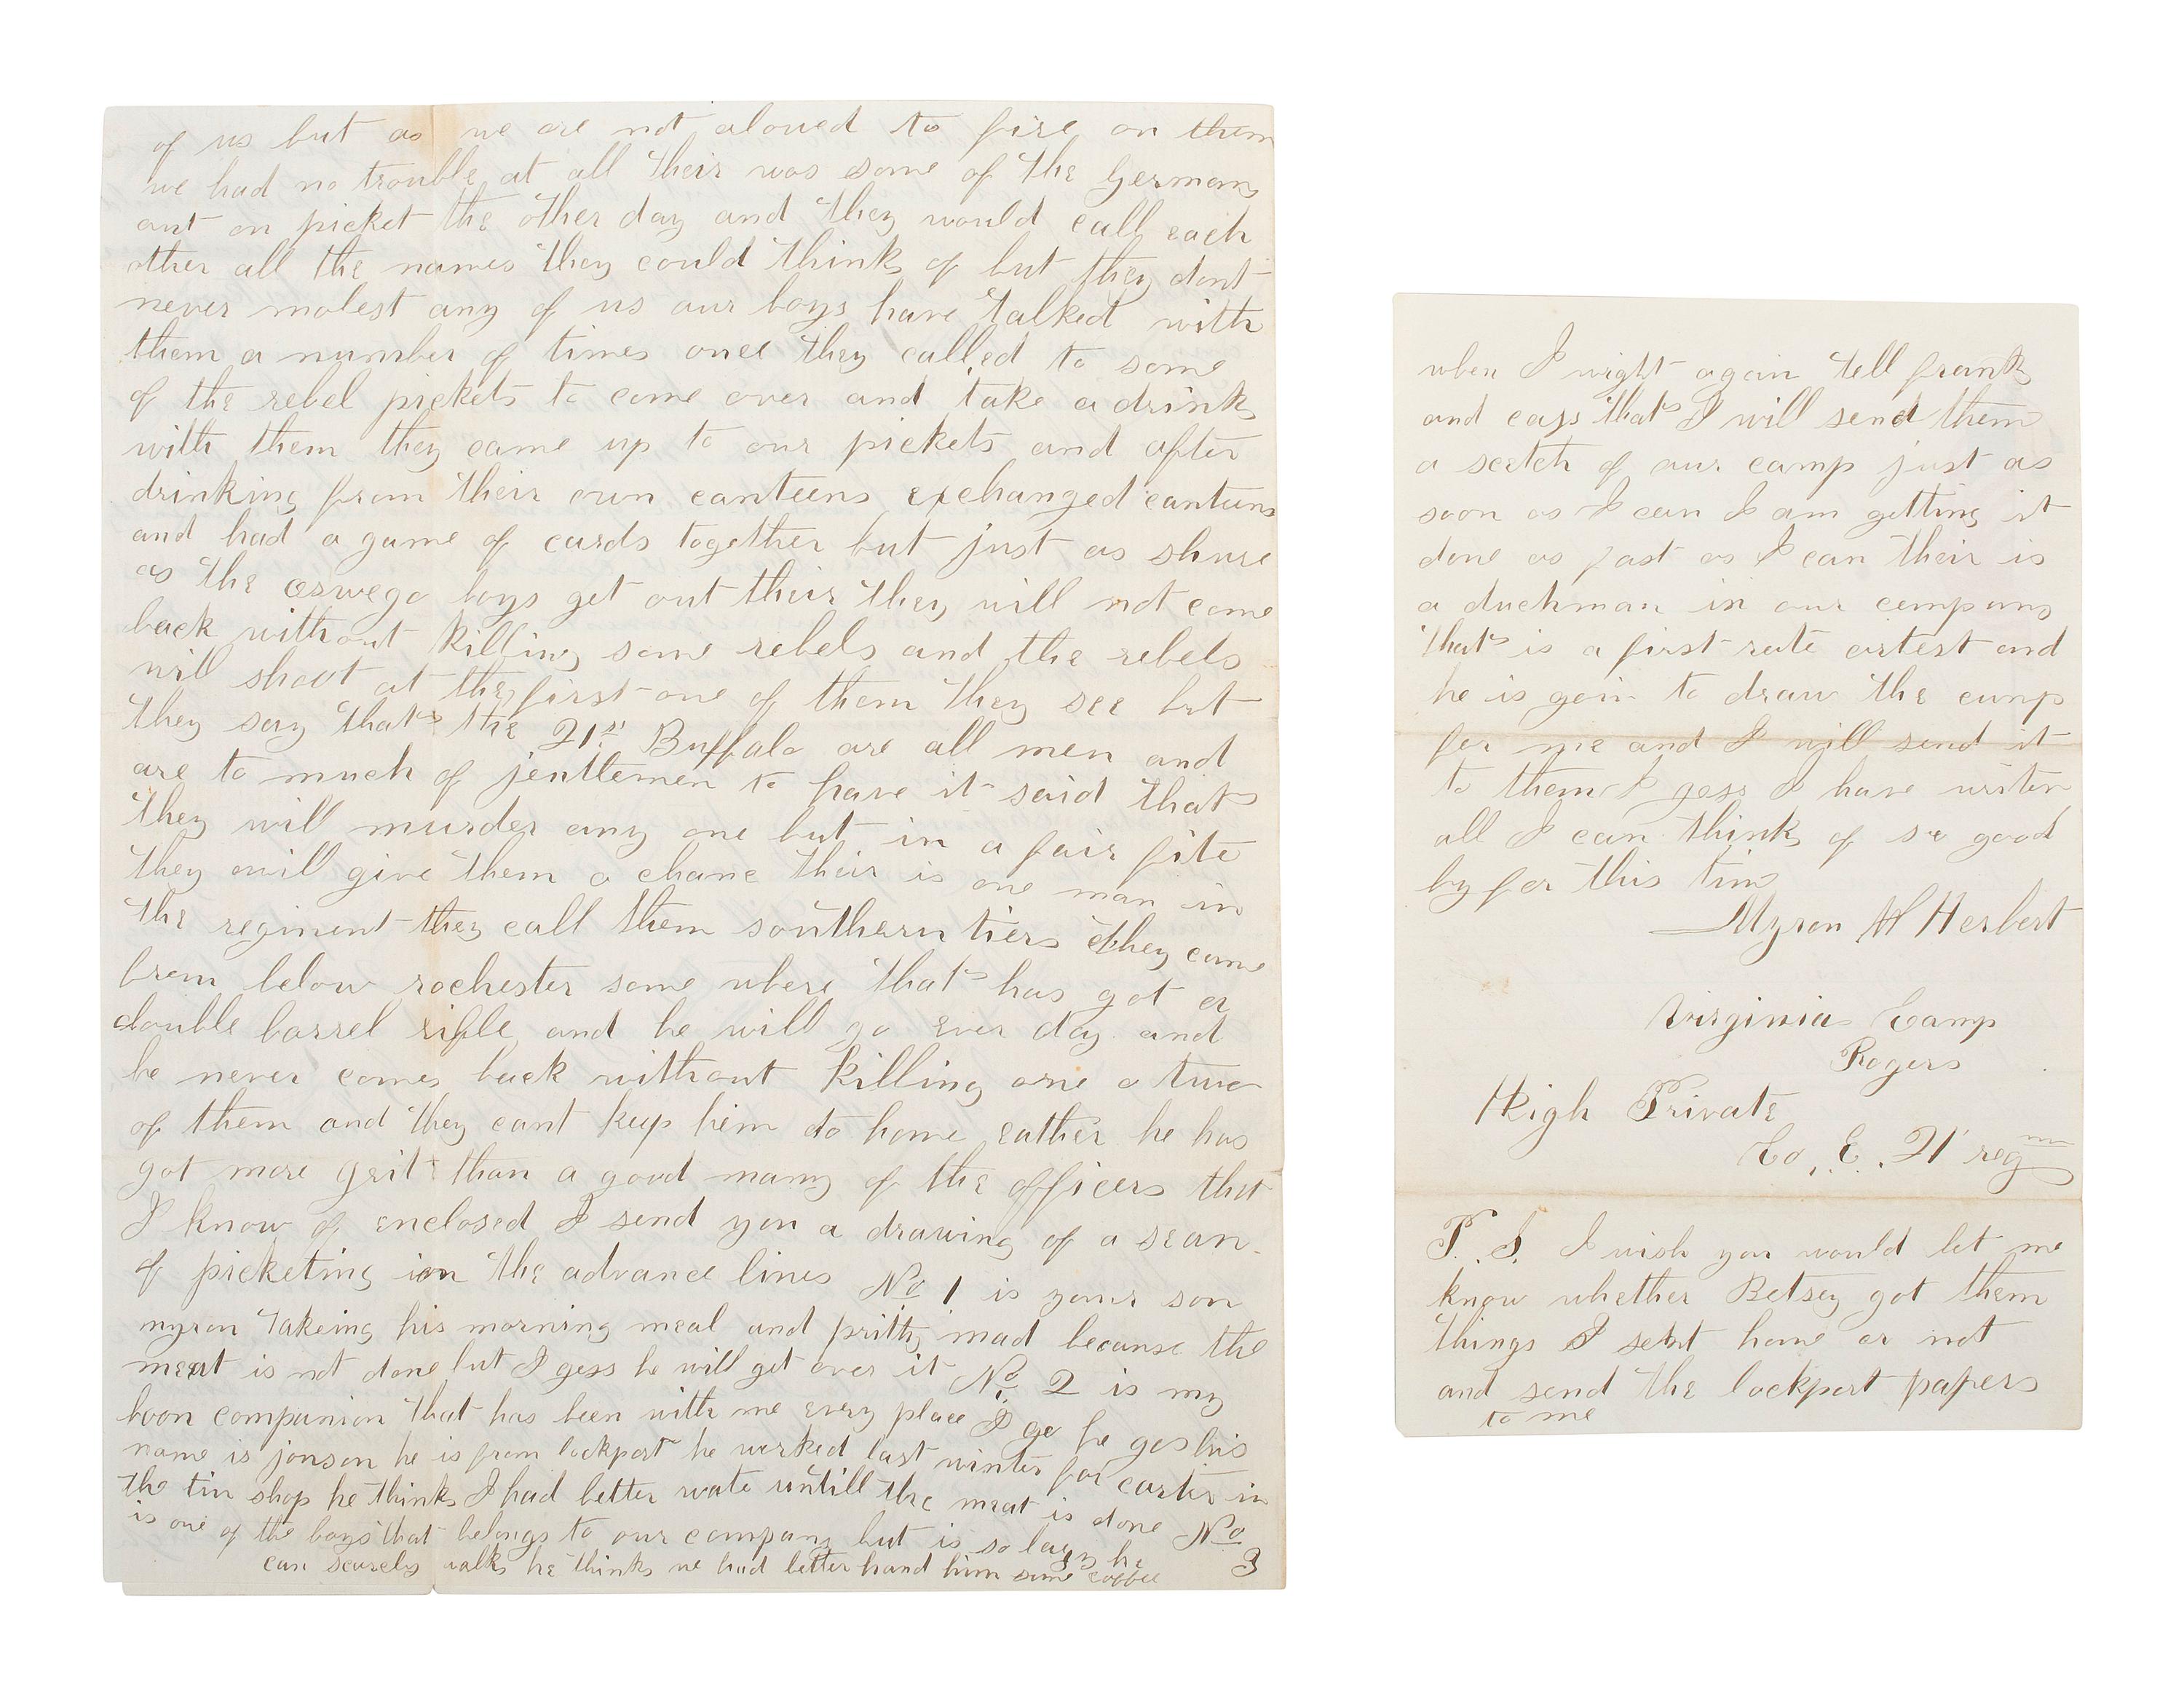 of us but as we are not aloued to fire on them
we had no trouble at all their was some of the Germans
out on picket the other day and they would call each
other all the names they could think of but they dont
never molest any of us our boys have talked with
them a number of times once they called to some
of the rebel pickets to come over and take a drink
with them they came up to our pickets and after
drinking from their own canteens exchanged canteens
and had a game of cards together but just as shure
as the oswego boys get out their they will not come
back without killing some rebels and the rebels
will shoot at the first one of them they see but
they say that the 21st Buffalo are all men and
are to much of jentlemen to have it said that
they will murder any one but in a fair fite
they will give them a chanc their is one man in
the regiment they call them southern tiers they came
from below rochester some where that has got a
double barrel rifle and he will go ever day and
he never comes back without killing one o two
of them and they cant keep him to home eather he has
got more grit than a good many of the officers that
I know of enclosed I send you a drawing of a sean
of picketing on the advance lines No 1 is your son
myron takeing his morning meal and pritty mad because the
meat is not done but I gess he will get over it No. 2 is my
boon companion that has been with me every place I go he gos his
name is jonson he is from lockport he worked last winter for carter in
the tin shop he thinks I had better wate untill the meat is done No
3
is one of the boys that belongs to our company but is so lazy he
can scarcely walk he thinks we had better hand him some coffee
when I wright again tell frank
and cass that I will send them
a scetch of our camp just as
soon as I can I am getting it
done as fast as I can their is
a duchman in our company
that is a first rate artest and
he is goin to draw the camp
for me and I will send it
to them I gess I have writen
all I can think of so good
by for this time
Myron H Herbert
Virginia Camp
Rogers
High Private
Co. E. 21 regm
P. S. I wish you would let me
know whether Betsey got them
things I sent home or not
and send the lockport papers
to me